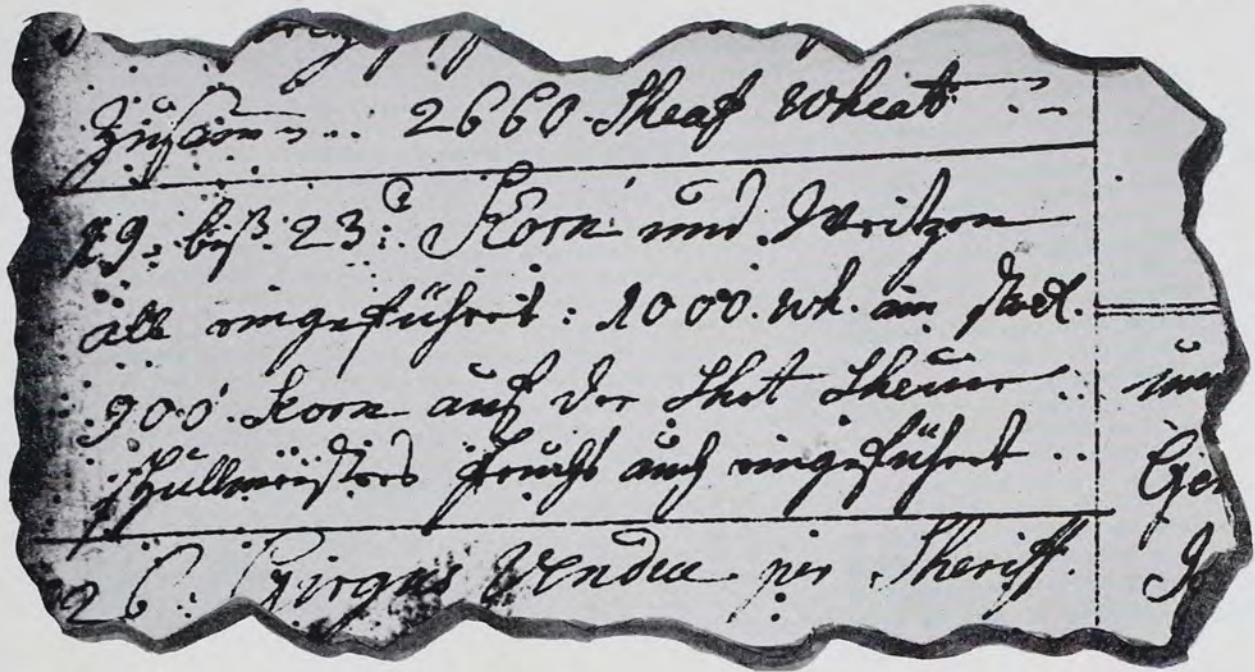 Zusamn... 2660. Sheaf wheat :~
19. biß. 23: Korn und Weitzen
alle eingeführet: 1000. wh. im
900. Korn auf der Shot Sheuer ..
shullmeisters frucht auch eingeführet ..
26. Girgus Vendue per Sheriff.